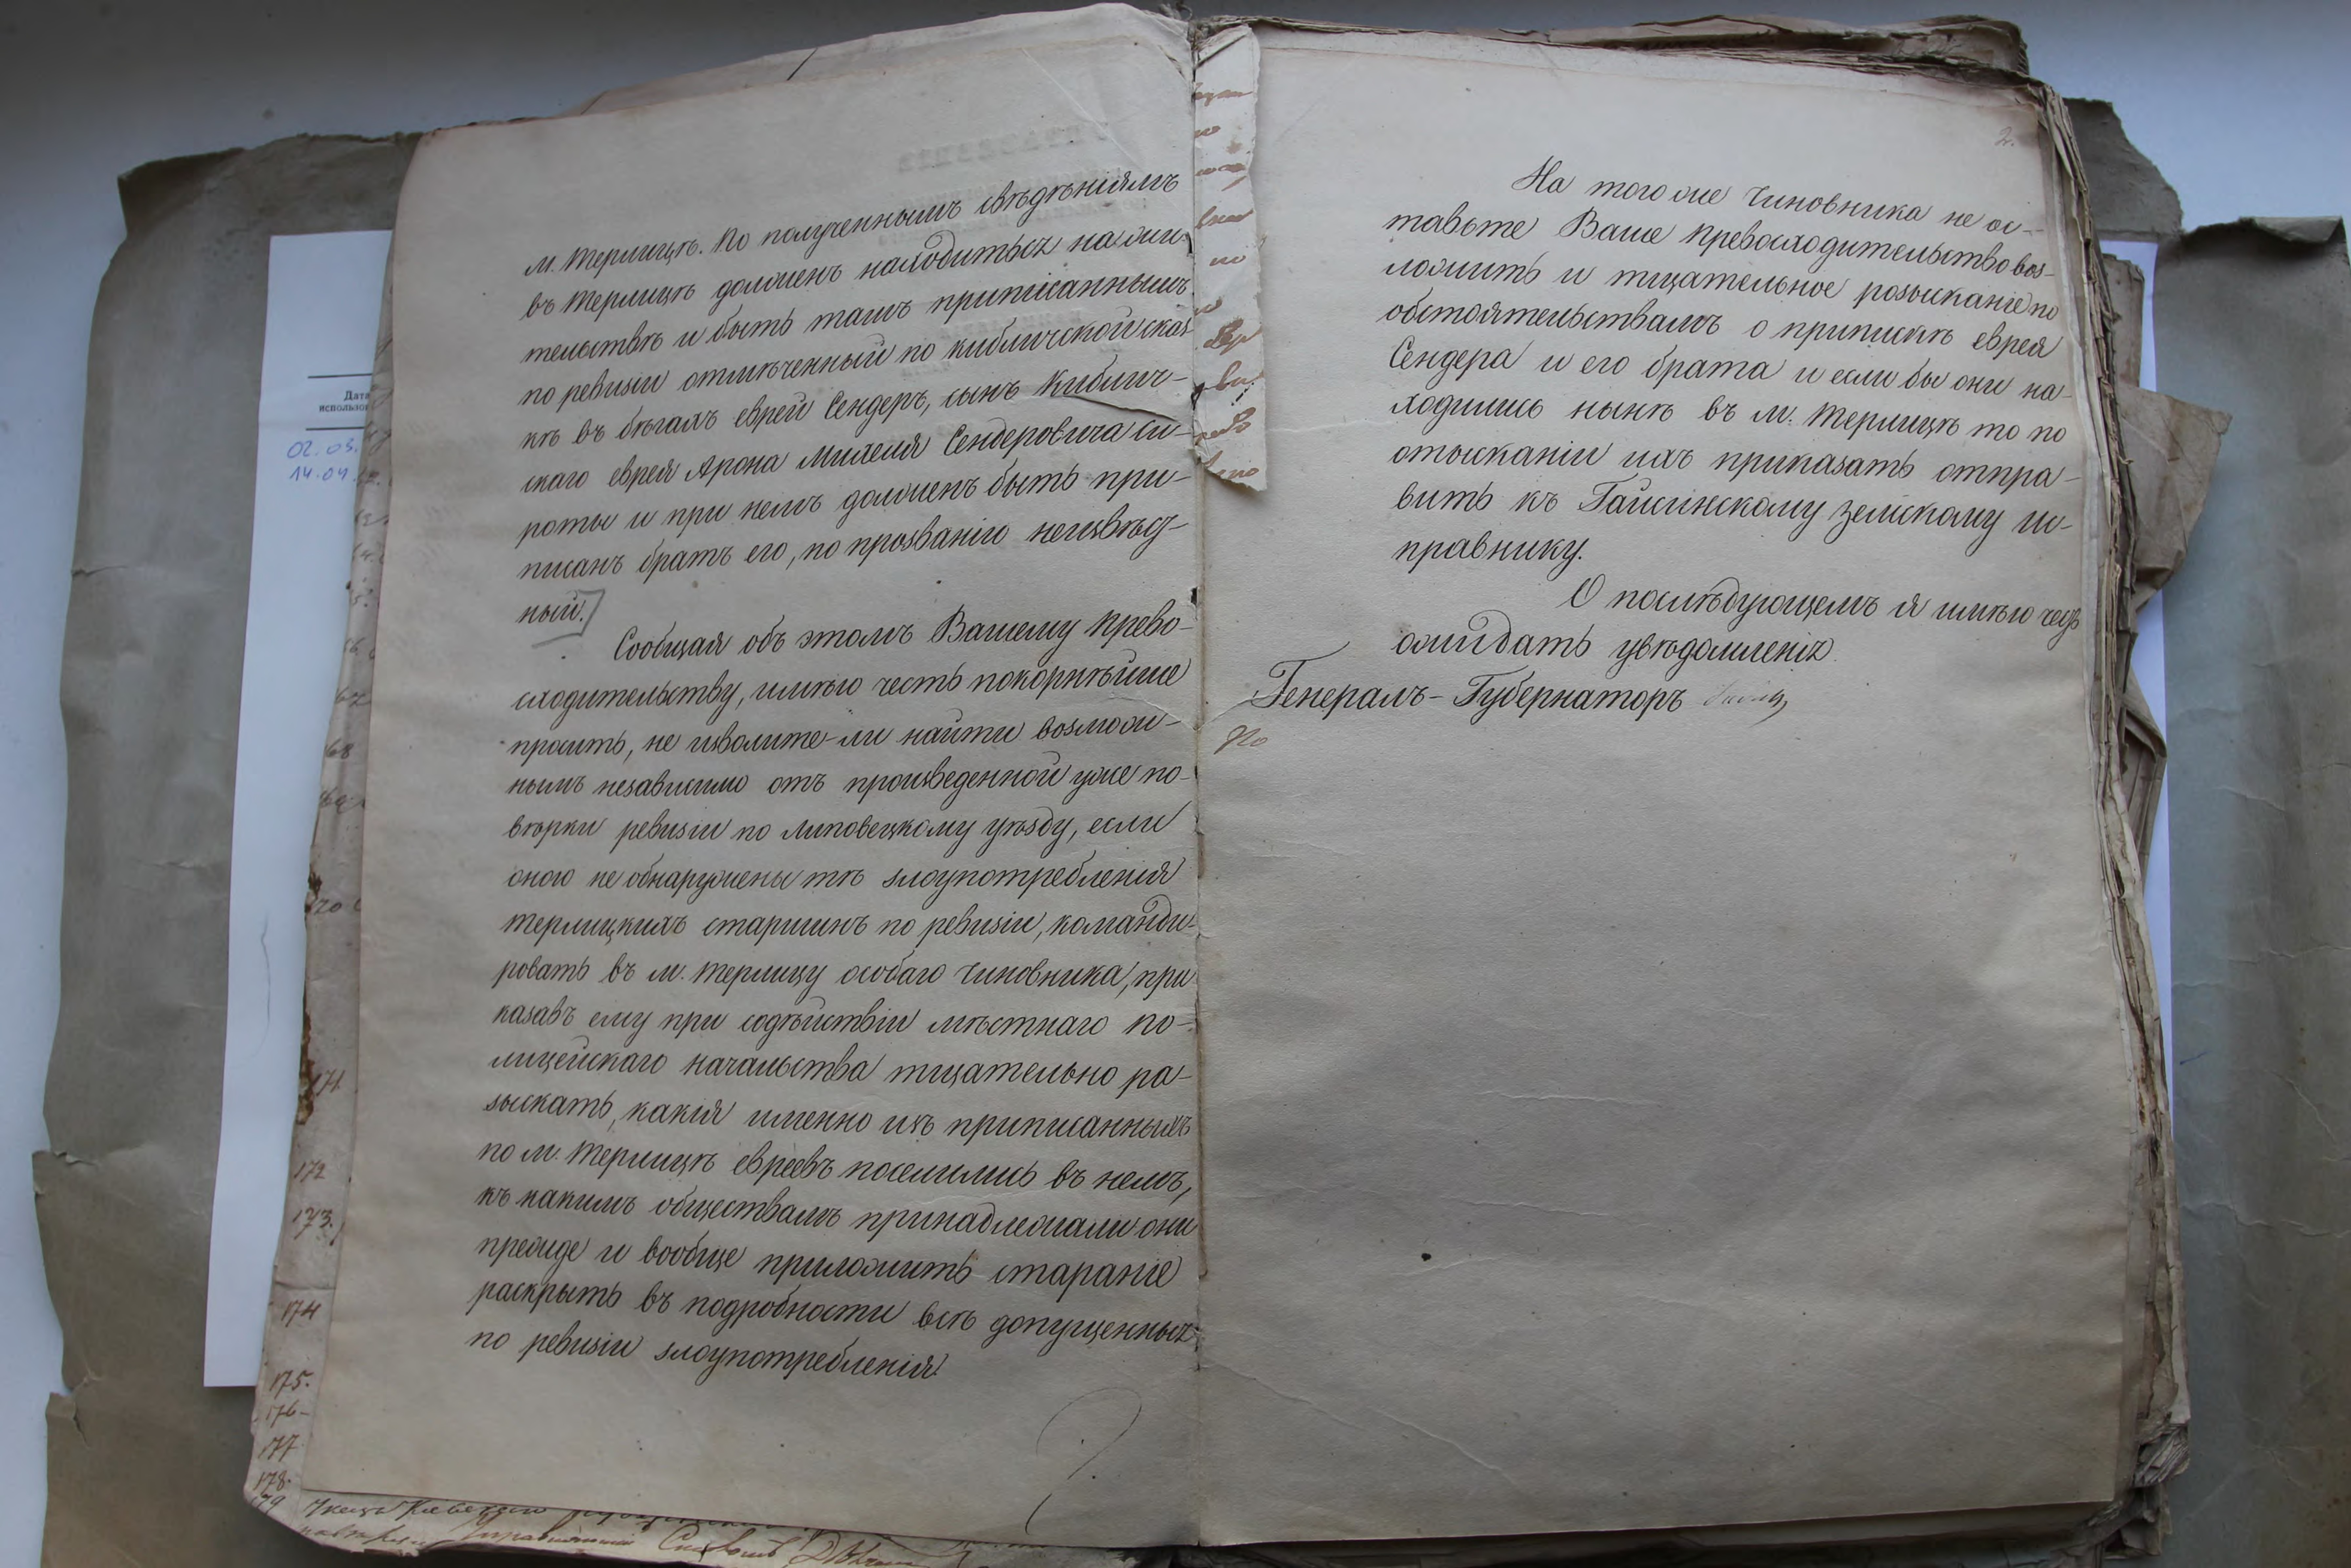 м. Терлицѣ. По полученнымъ свѣдѣніямъ
въ Терлицѣ долженъ находиться на жи-
тельствѣ и быть тамъ приписаннымъ
по ревизіи отмѣченный по Кибличской сказ-
кѣ въ бѣгахъ еврей Сендеръ, сынъ Киблич-
скаго еврея Арона Михеля Сендеровича Си-
роты и при немъ долженъ быть при-
писанъ братъ его, по прозванію неизвѣст-
ный.
Сообщая объ этомъ Вашему Прево-
сходительству, имѣю честь покорнѣйше
просить, не изволите-ли найти возмож-
нымъ независимо отъ произведенной уже по-
вѣрки ревизіи по Липовецкому уѣзду, если
оною не обнаружены тѣ злоупотребленія
терлицкихъ старшинъ по ревизіи, команди-
ровать въ м. Терлицу особаго чиновника, при-
казавъ ему при содѣйствіи мѣстнаго по-
лицейскаго начальства тщательно ра-
зыскать, какія именно изъ приписанныхъ
по м. Терлицѣ евреевъ поселились въ немъ,
къ какимъ обществамъ принадлежали они
прежде и вообще приложить стараніе
раскрыть въ подробности всѣ допущенныя
по ревизіи злоупотребленія.
2.
На того же чиновника не ос-
тавьте Ваше Превосходительство воз-
ложить и тщательное розысканіе по
обстоятельствамъ о припискѣ еврея
Сендера и его брата и если бы они на-
ходились нынѣ въ м. Терлицѣ то по
отысканіи ихъ приказать отпра-
вить къ Гайсинскому Земскому Ис-
правнику.
О послѣдующемъ я имѣю честь
ожидать увѣдомленія.
Генералъ-Губернаторъ
Дата
использов
02.03.
14.04.
68
171
172
173.
174
175.
176
177
178.
179